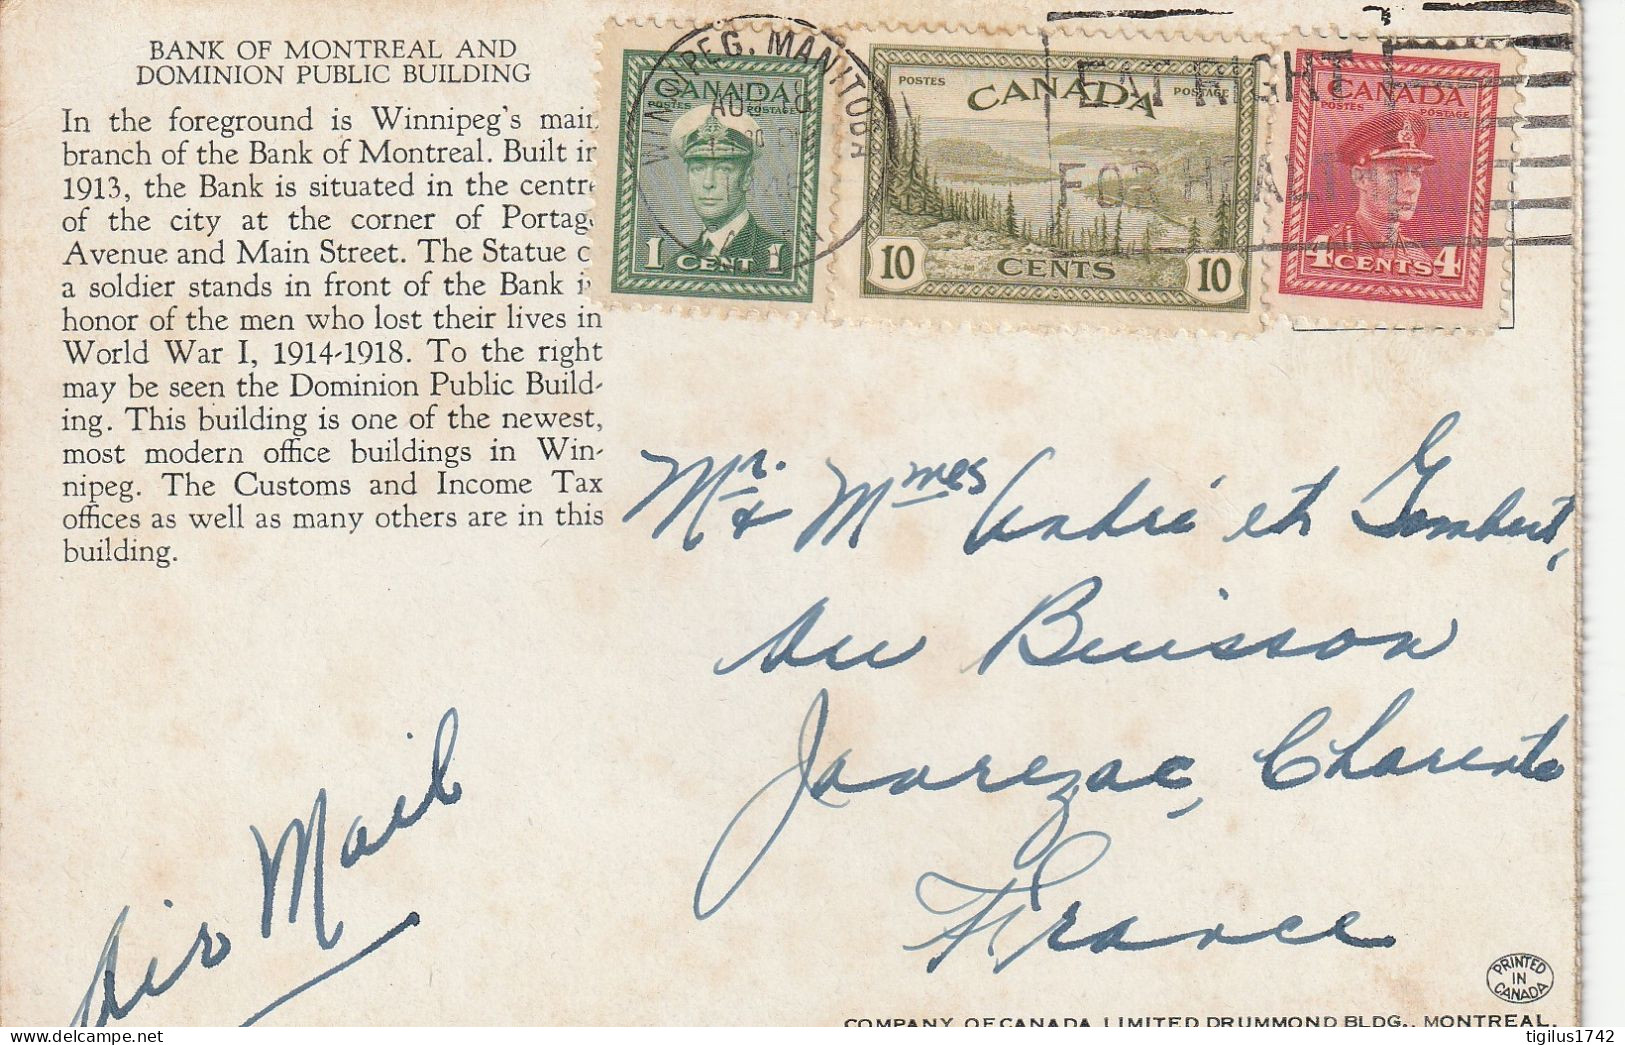 BANK OF MONTREAL AND
DOMINION PUBLIC BUILDING
In the foreground is Winnipeg's main
branch of the Bank of Montreal. Built in
1913, the Bank is situated in the centre
of the city at the corner of Portage
Avenue and Main Street. The Statue o
a soldier stands in front of the Bank in
honor of the men who lost their lives in
World War I, 1914-1918. To the right
may be seen the Dominion Public Build-
ing. This building is one of the newest,
most modern office buildings in Win-
nipeg. The Customs and Income Tax
offices as well as many others are in this
building.
WINNIPEG, MANITOBA
CANADA
POSTES POSTAGE
1 CENT 1
POSTES POSTAGE
CANADA
10 CENTS 10
CANADA
POSTES POSTAGE
4 CENTS 4
EAT RIGHT
FOR HEALTH
Mr. & Mmes André et Gombert,
Buisson
Jaurezac, Charente
France
Air Mail
PRINTED
IN
CANADA
COMPANY OF CANADA LIMITED DRUMMOND BLDG., MONTREAL.
tigilus1742